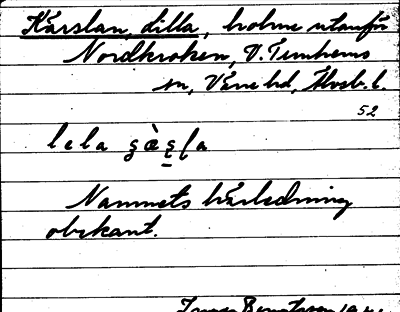 Kärslan, lilla, holme utanför
Nordkroken, V. Tunhems
sn, Väne hd, Älvsb. l.
52
lela
Namnets härledning
obekant.